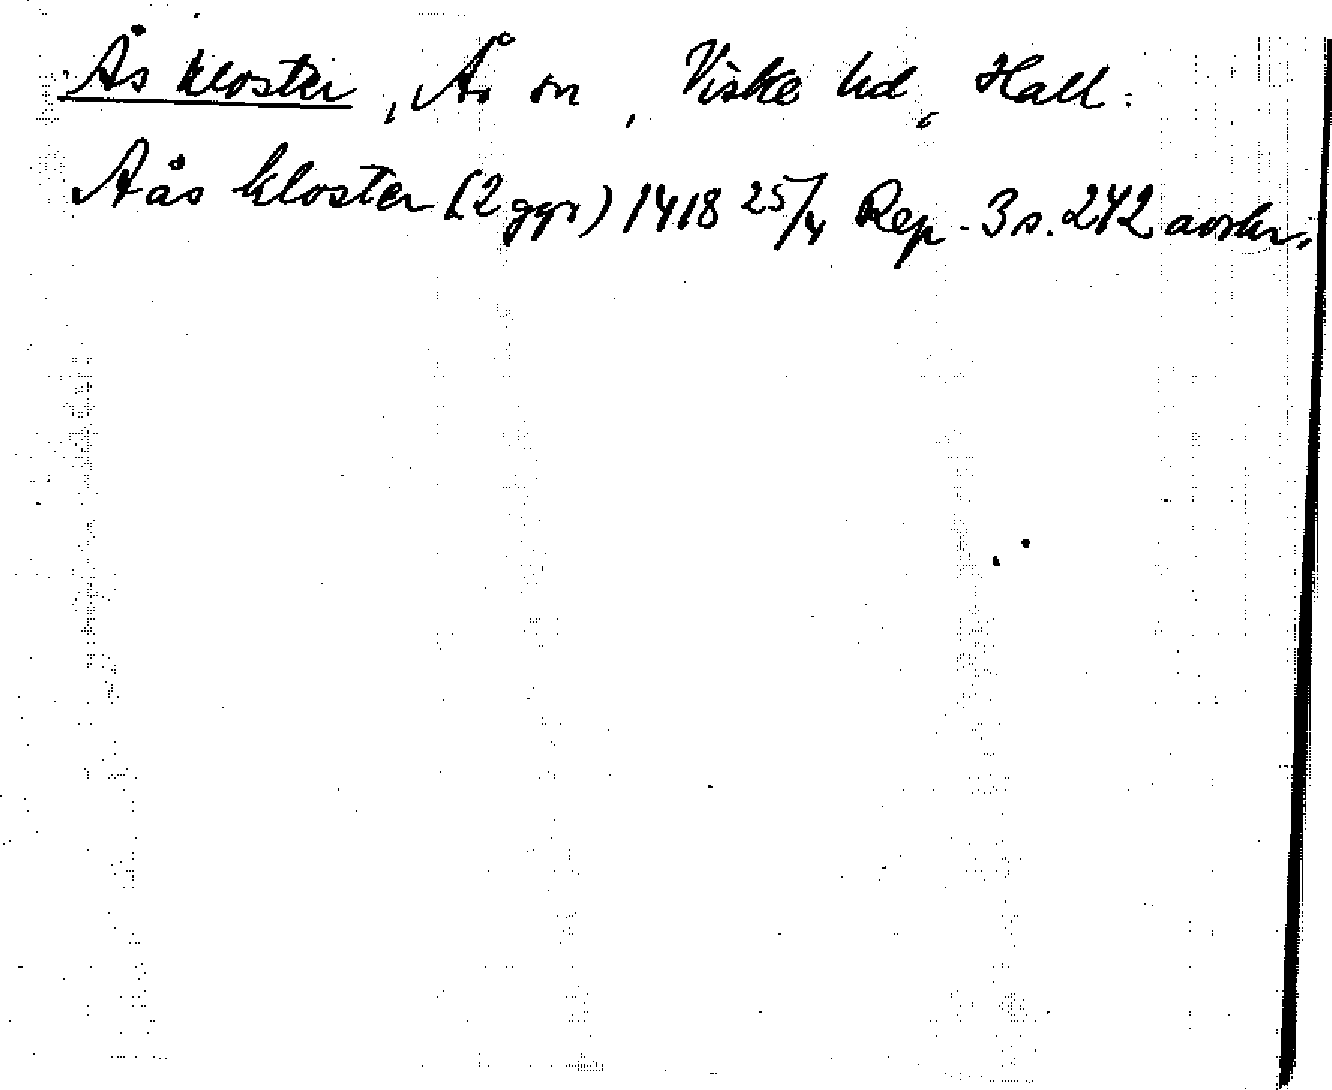 Ås kloster, Ås sn, Viske hd, Hall.
Aås kloster (2 ggr) 1418 25/4 Rep. 3 s. 242 avskr.